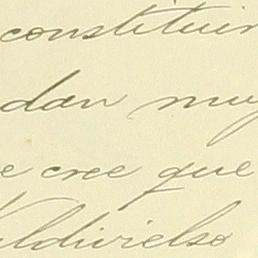 constituir
dan muy
e cree que
Valdivielso